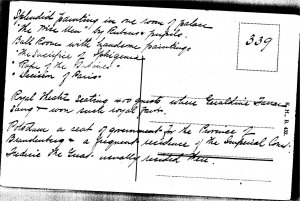 Splendid painting in one room of palace
"The Wise Men" by Rubens & pupils.
Ball Room with handsome paintings
"The Sacrifice of Iphigenia"
"Rape of the Sabines"
" Decision of Paris
339
Royal Theatre seating 800 guests where Geraldine Farrar
sang & won such royal favor.
Potsdam a seat of government for the Province of
Brandenburg & a frequent residence of the Imperial Court
Frederic the Great usually resided there.